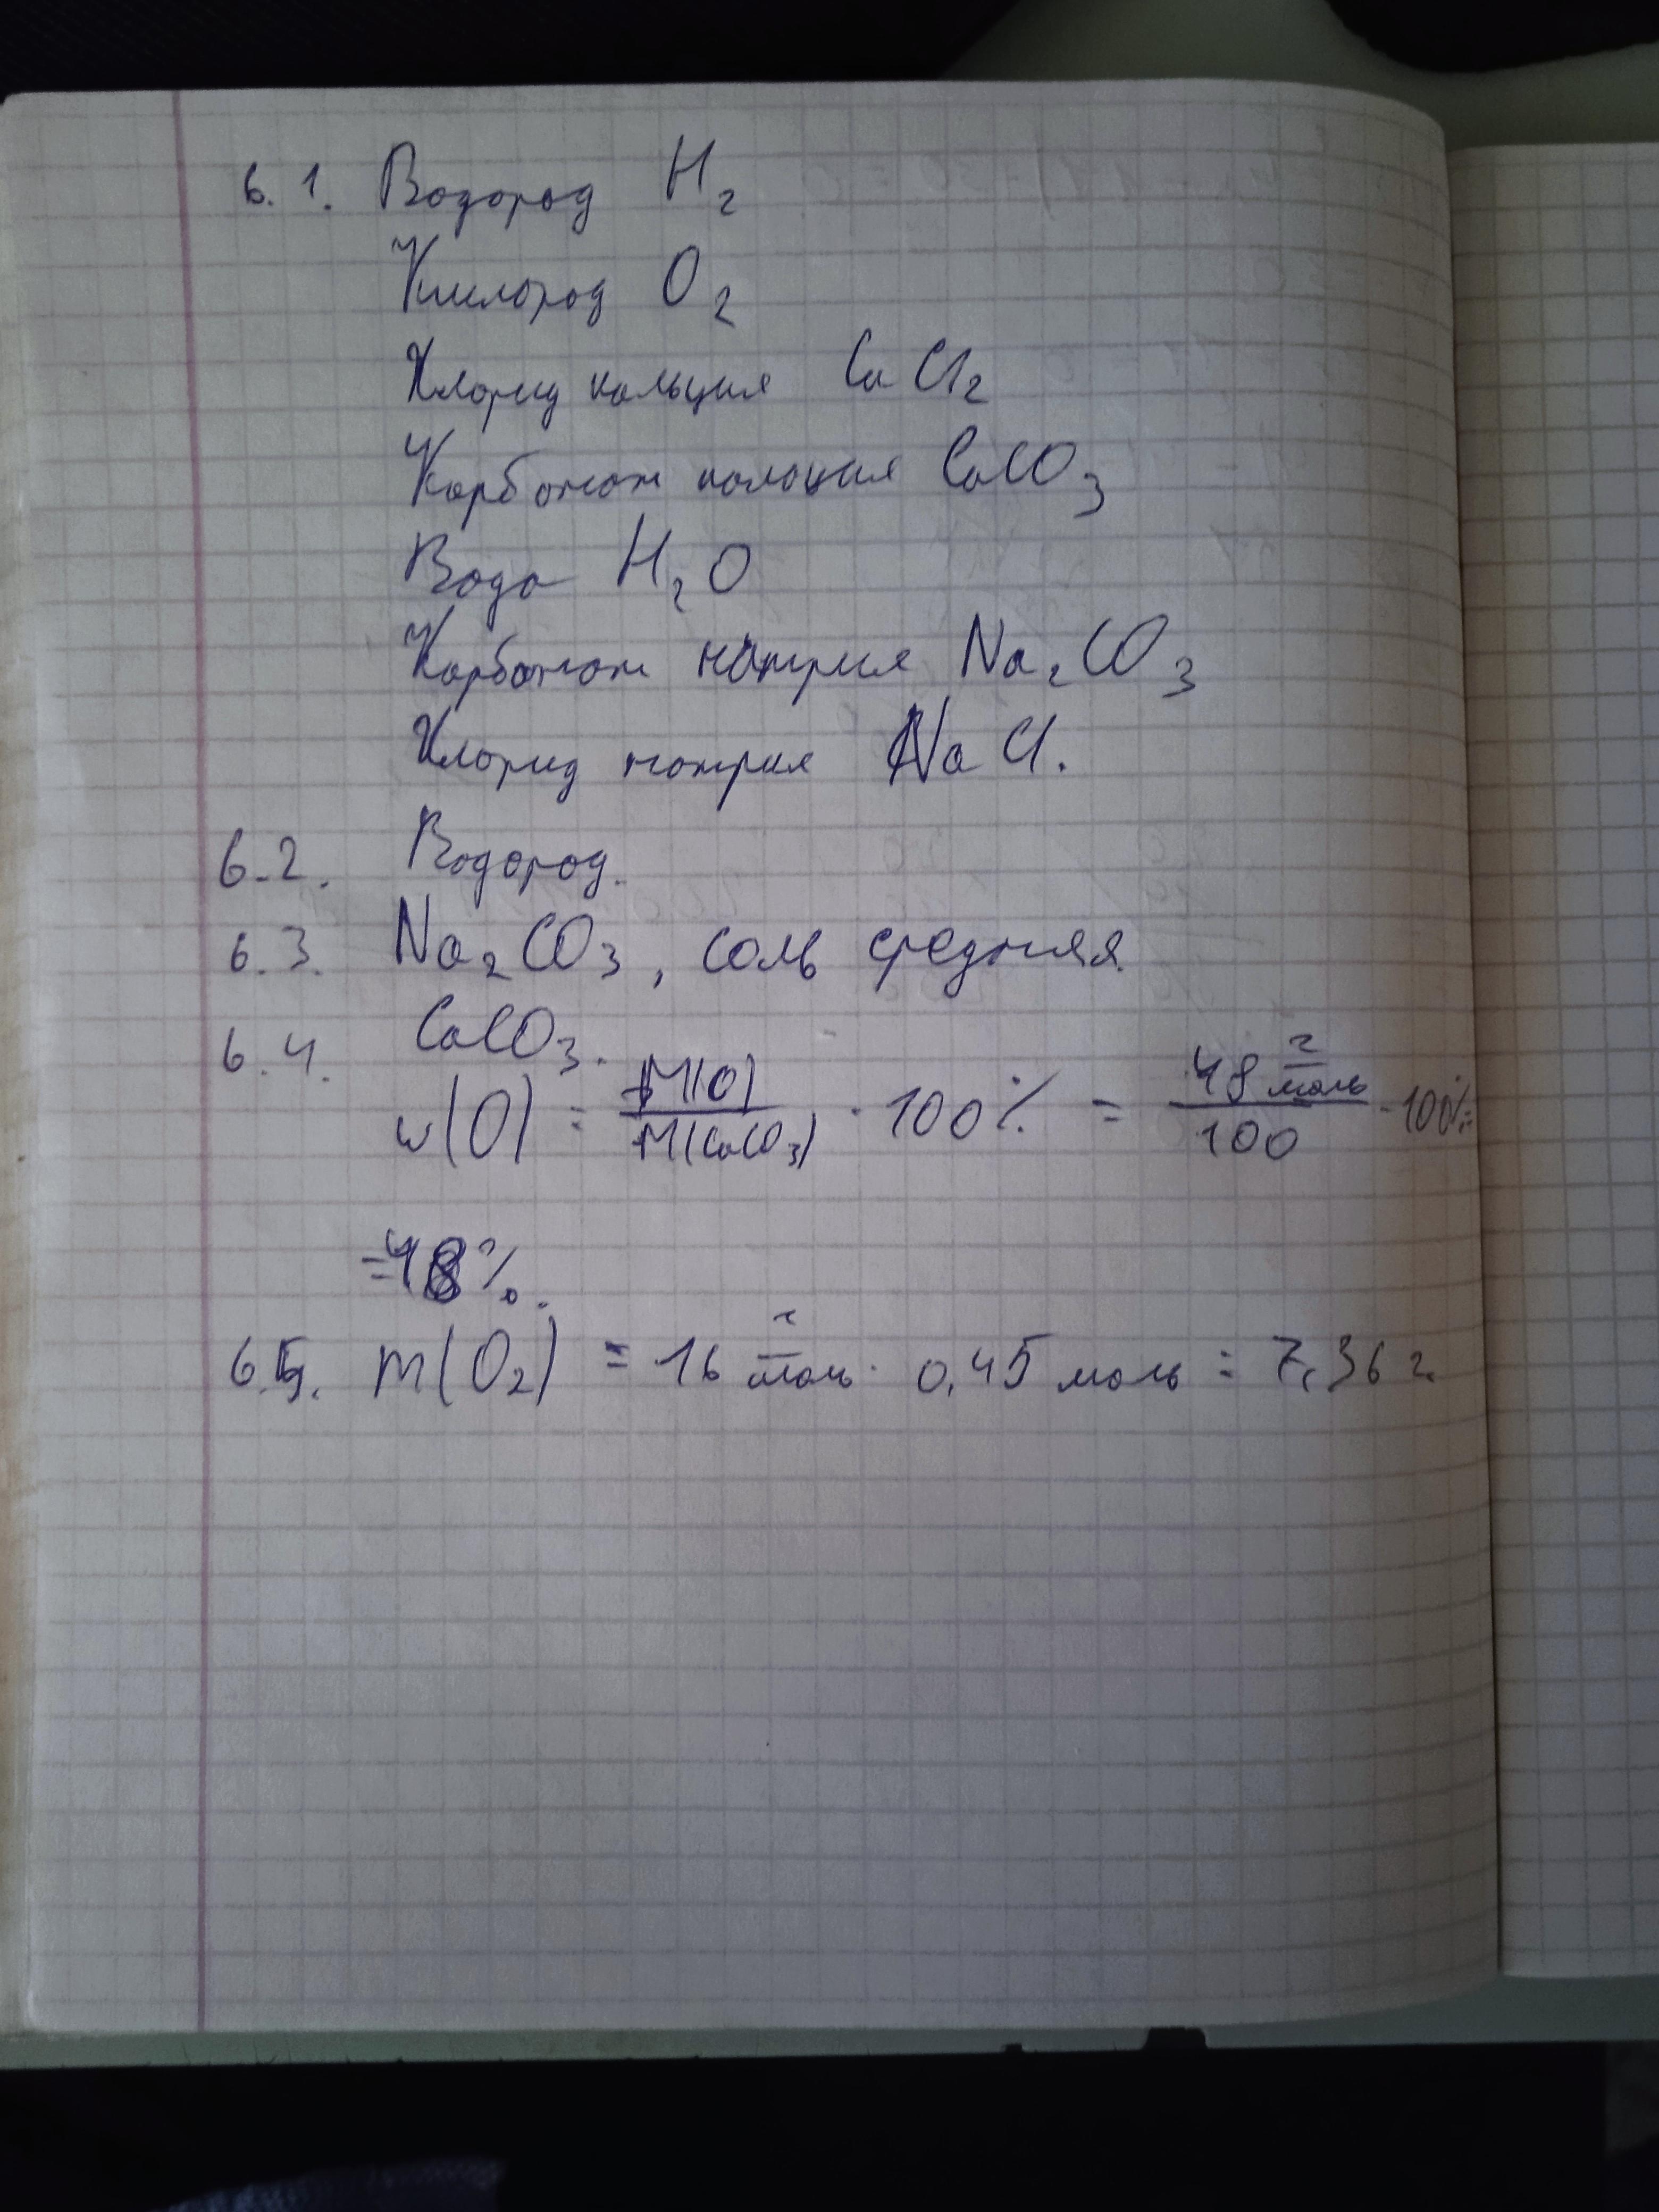 6.1. Водород H₂
Кислород O₂
Хлорид кальция CaCl₂
Карбонат кальция CaCO₃
Вода H₂O
Карбонат натрия Na₂CO₃
Хлорид натрия NaCl.
6.2. Водород.
6.3. Na₂CO₃, соль средняя.
6.4. CaCO₃.
w(O) = M(O)/M(CaCO₃) · 100% = 48 г/моль / 100 · 100% =
=48%.
6.5. m(O₂) = 16 г/моль · 0,45 моль = 7,36 г.